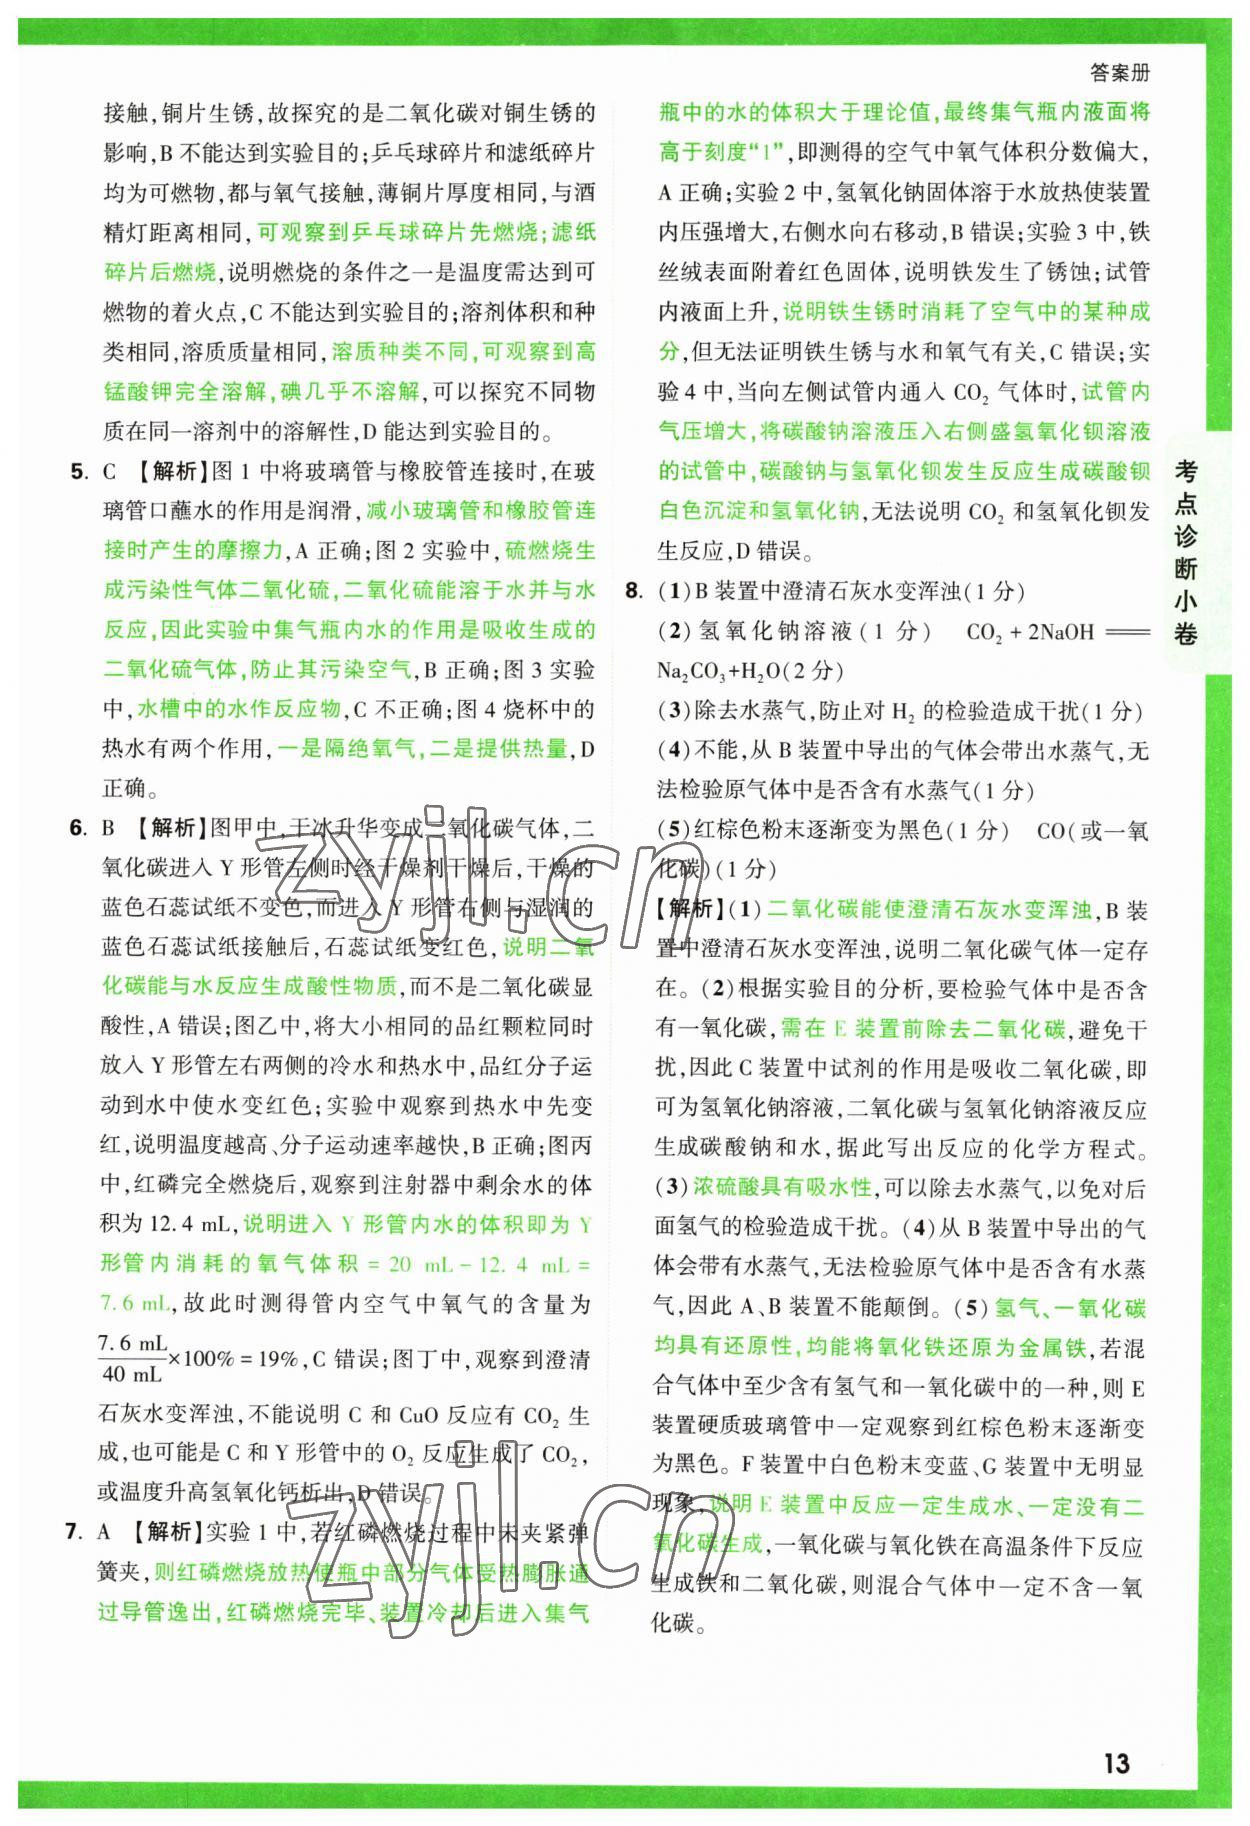 答案册
接触,铜片生锈,故探究的是二氧化碳对铜生锈的
影响,B 不能达到实验目的;乒乓球碎片和滤纸碎片
均为可燃物,都与氧气接触,薄铜片厚度相同,与酒
精灯距离相同,可观察到乒乓球碎片先燃烧;滤纸
碎片后燃烧,说明燃烧的条件之一是温度需达到可
燃物的着火点,C 不能达到实验目的;溶剂体积和种
类相同,溶质质量相同,溶质种类不同,可观察到高
锰酸钾完全溶解,碘几乎不溶解,可以探究不同物
质在同一溶剂中的溶解性,D 能达到实验目的。
5. C 【解析】图 1 中将玻璃管与橡胶管连接时,在玻
璃管口蘸水的作用是润滑,减小玻璃管和橡胶管连
接时产生的摩擦力,A 正确;图 2 实验中,硫燃烧生
成污染性气体二氧化硫,二氧化硫能溶于水并与水
反应,因此实验中集气瓶内水的作用是吸收生成的
二氧化硫气体,防止其污染空气,B 正确;图 3 实验
中,水槽中的水作反应物,C 不正确;图 4 烧杯中的
热水有两个作用,一是隔绝氧气,二是提供热量,D
正确。
6. B 【解析】图甲中,干冰升华变成二氧化碳气体,二
氧化碳进入 Y 形管左侧时经干燥剂干燥后,干燥的
蓝色石蕊试纸不变色,而进入 Y 形管右侧与湿润的
蓝色石蕊试纸接触后,石蕊试纸变红色,说明二氧
化碳能与水反应生成酸性物质,而不是二氧化碳显
酸性,A 错误;图乙中,将大小相同的品红颗粒同时
放入 Y 形管左右两侧的冷水和热水中,品红分子运
动到水中使水变红色;实验中观察到热水中先变
红,说明温度越高、分子运动速率越快,B 正确;图丙
中,红磷完全燃烧后,观察到注射器中剩余水的体
积为 12.4 mL,说明进入 Y 形管内水的体积即为 Y
形管内消耗的氧气体积 = 20 mL - 12.4 mL =
7.6 mL,故此时测得管内空气中氧气的含量为
7.6 mL/40 mL×100% = 19%,C 错误;图丁中,观察到澄清
石灰水变浑浊,不能说明 C 和 CuO 反应有 CO₂ 生
成,也可能是 C 和 Y 形管中的 O₂ 反应生成了 CO₂,
或温度升高氢氧化钙析出,D 错误。
7. A 【解析】实验 1 中,若红磷燃烧过程中未夹紧弹
簧夹,则红磷燃烧放热使瓶中部分气体受热膨胀通
过导管逸出,红磷燃烧完毕、装置冷却后进入集气
瓶中的水的体积大于理论值,最终集气瓶内液面将
高于刻度“1”,即测得的空气中氧气体积分数偏大,
A 正确;实验 2 中,氢氧化钠固体溶于水放热使装置
内压强增大,右侧水向右移动,B 错误;实验 3 中,铁
丝绒表面附着红色固体,说明铁发生了锈蚀;试管
内液面上升,说明铁生锈时消耗了空气中的某种成
分,但无法证明铁生锈与水和氧气有关,C 错误;实
验 4 中,当向左侧试管内通入 CO₂ 气体时,试管内
气压增大,将碳酸钠溶液压入右侧盛氢氧化钡溶液
的试管中,碳酸钠与氢氧化钡发生反应生成碳酸钡
白色沉淀和氢氧化钠,无法说明 CO₂ 和氢氧化钡发
生反应,D 错误。
8. (1)B 装置中澄清石灰水变浑浊(1 分)
(2)氢氧化钠溶液(1 分) CO₂ + 2NaOH ══
Na₂CO₃+H₂O(2 分)
(3)除去水蒸气,防止对 H₂ 的检验造成干扰(1 分)
(4)不能,从 B 装置中导出的气体会带出水蒸气,无
法检验原气体中是否含有水蒸气(1 分)
(5)红棕色粉末逐渐变为黑色(1 分) CO(或一氧
化碳)(1 分)
【解析】(1)二氧化碳能使澄清石灰水变浑浊,B 装
置中澄清石灰水变浑浊,说明二氧化碳气体一定存
在。(2)根据实验目的分析,要检验气体中是否含
有一氧化碳,需在 E 装置前除去二氧化碳,避免干
扰,因此 C 装置中试剂的作用是吸收二氧化碳,即
可为氢氧化钠溶液,二氧化碳与氢氧化钠溶液反应
生成碳酸钠和水,据此写出反应的化学方程式。
(3)浓硫酸具有吸水性,可以除去水蒸气,以免对后
面氢气的检验造成干扰。(4)从 B 装置中导出的气
体会带有水蒸气,无法检验原气体中是否含有水蒸
气,因此 A、B 装置不能颠倒。(5)氢气、一氧化碳
均具有还原性,均能将氧化铁还原为金属铁,若混
合气体中至少含有氢气和一氧化碳中的一种,则 E
装置硬质玻璃管中一定观察到红棕色粉末逐渐变
为黑色。F 装置中白色粉末变蓝、G 装置中无明显
现象,说明 E 装置中反应一定生成水、一定没有二
氧化碳生成,一氧化碳与氧化铁在高温条件下反应
生成铁和二氧化碳,则混合气体中一定不含一氧
化碳。
考点诊断小卷
zyjl.cn
zyjl.cn
13